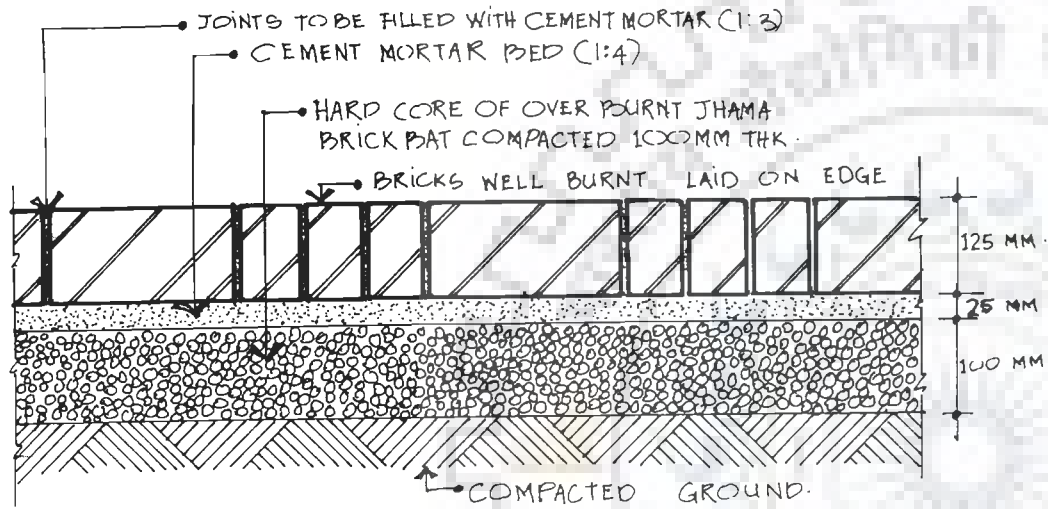 JOINTS TO BE FILLED WITH CEMENT MORTAR (1:3)
CEMENT MORTAR BED (1:4)
HARD CORE OF OVER BURNT JHAMA
BRICK BAT COMPACTED 100MM THK.
BRICKS WELL BURNT LAID ON EDGE
125 MM
25 MM
100 MM
COMPACTED GROUND.